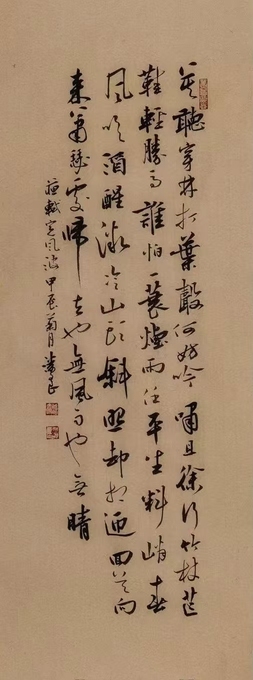 莫聽穿林打葉聲何妨吟嘯且徐行竹杖芒
鞋輕勝馬誰怕一蓑煙雨任平生料峭春
風吹酒醒微冷山頭斜照却相迎回首向
來蕭瑟處歸去也無風雨也无晴
蘇軾定風波甲辰菊月